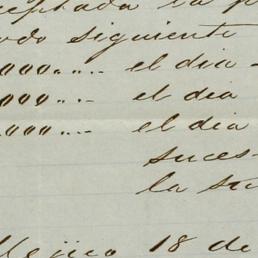 eptada la p
odo siguiente
000..... el dia -
000..- el dia
000..- el dia
suces-
la su
Mejico 18 de